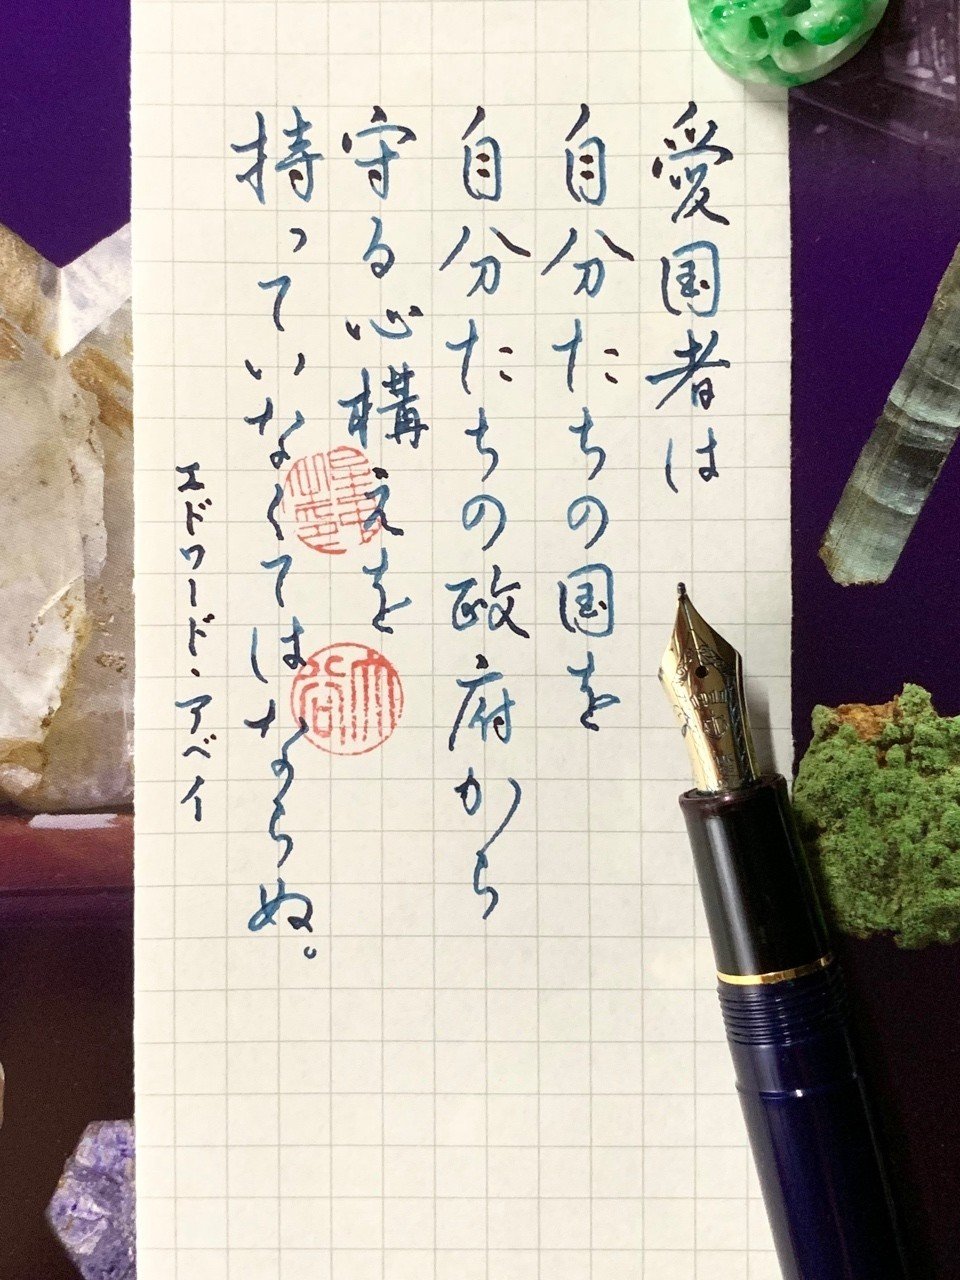 愛国者は
自分たちの国を
自分たちの政府から
守る心構えを
持っていなくてはならぬ。
エドワード・アベイ